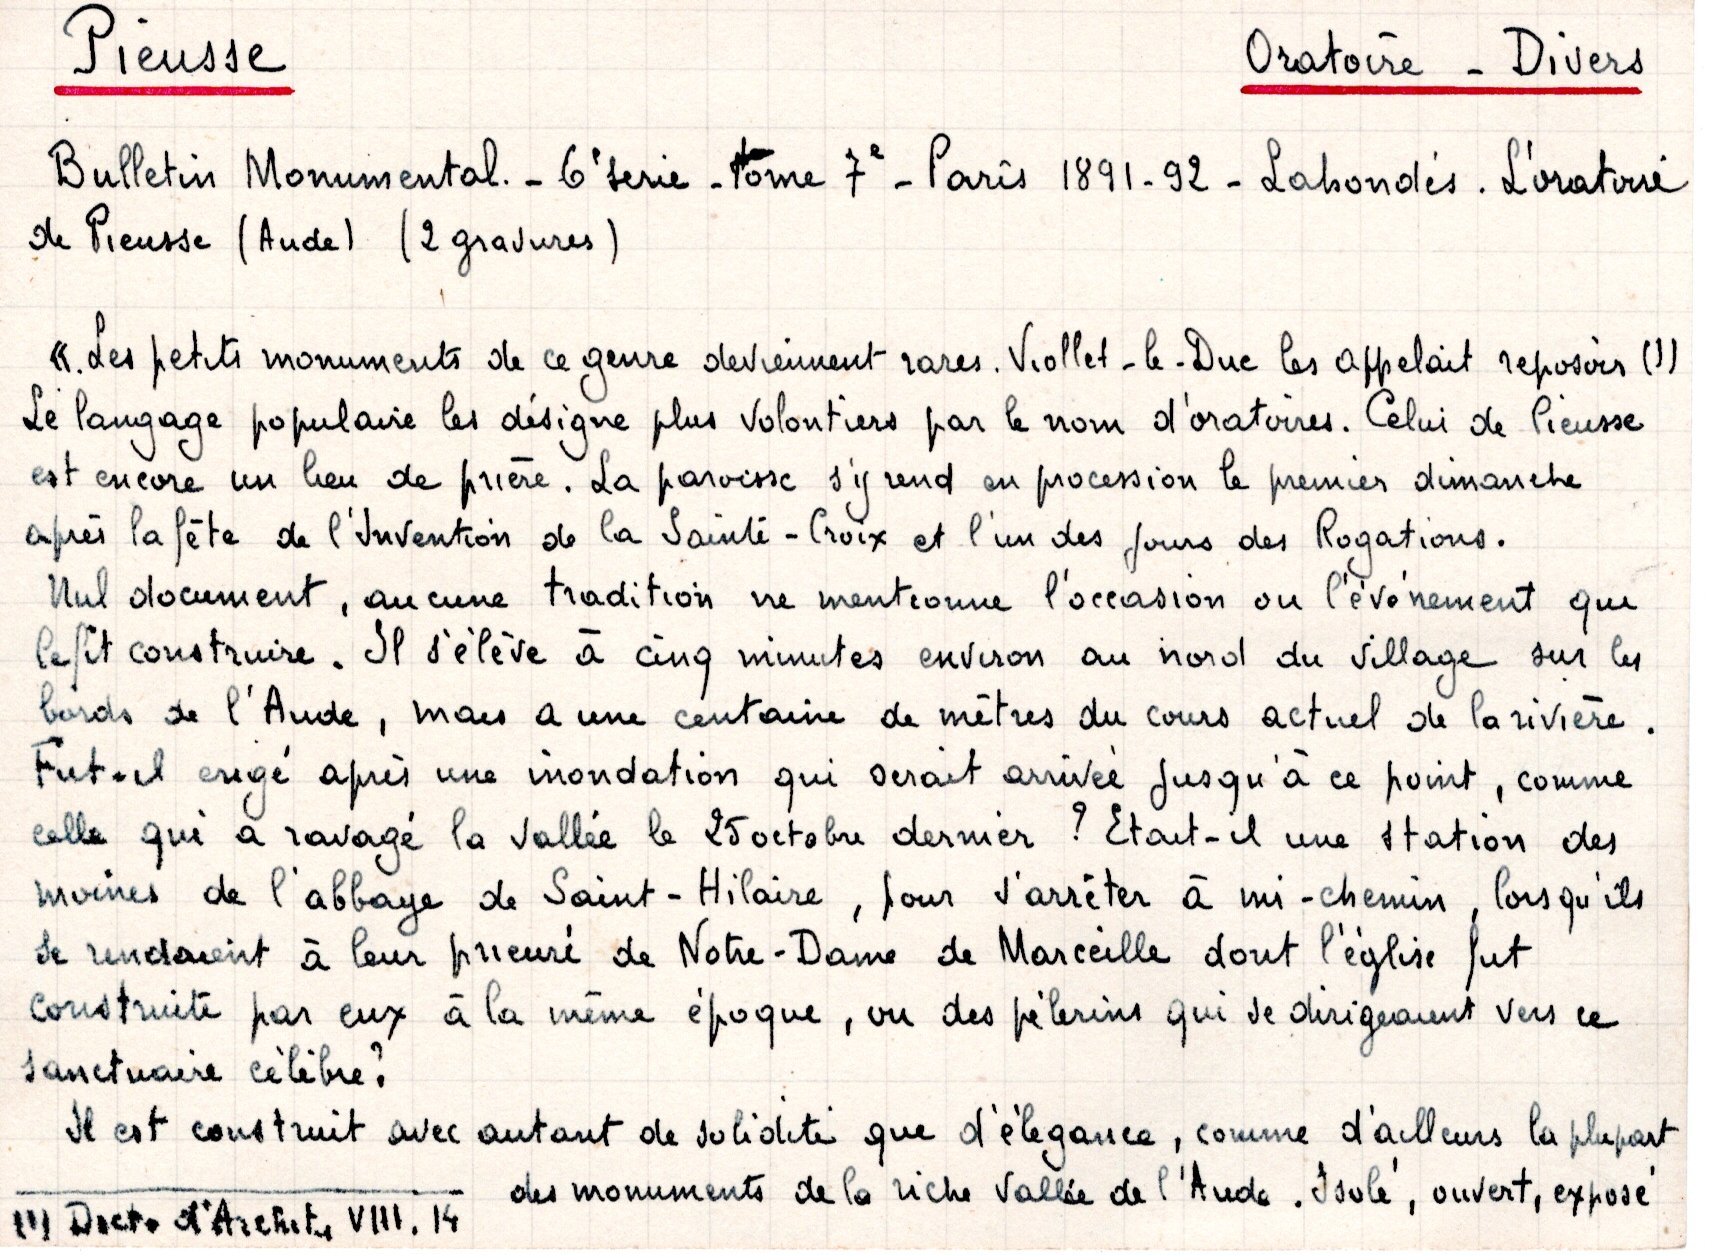 Pieusse
Oratoire - Divers
Bulletin Monumental. - 6e serie - tome 7e - Paris 1891-92 - Lahondés. L'oratoire
de Pieusse (Aude) (2 gravures)
«. Les petits monuments de ce genre deviennent rares. Viollet-le-Duc les appelait reposoirs (1)
Le langage populaire les désigne plus volontiers par le nom d'oratoires. Celui de Pieusse
est encore un lieu de prière. La paroisse s'y rend en procession le premier dimanche
après la fête de l'Invention de la Sainte-Croix et l'un des jours des Rogations.
Nul document, aucune tradition ne mentionne l'occasion ou l'événement qui
le fit construire. Il s'élève à cinq minutes environ au nord du village sur les
bords de l'Aude, mais a une centaine de mètres du cours actuel de la rivière.
Fut-il erigé après une inondation qui serait arrivée jusqu'à ce point, comme
celle qui a ravagé la vallée le 25 octobre dernier ? Etait-il une station des
moines de l'abbaye de Saint-Hilaire, pour s'arrêter à mi-chemin, lorsqu'ils
se rendaient à leur prieuré de Notre-Dame de Marceille dont l'église fut
construite par eux à la même époque, ou des pèlerins qui se dirigeaient vers ce
sanctuaire célèbre ?
Il est construit avec autant de solidité que d'élegance, comme d'ailleurs la plupart
des monuments de la riche vallée de l'Aude. Isolé, ouvert, exposé
(1) Dicto d'Archit. VIII. 14